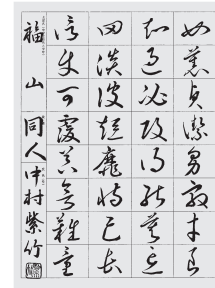 女慕貞潔男效才良
知過必改得能莫忘
罔談彼短靡恃己長
信使可覆器欲難量
福山 同人 中村紫竹